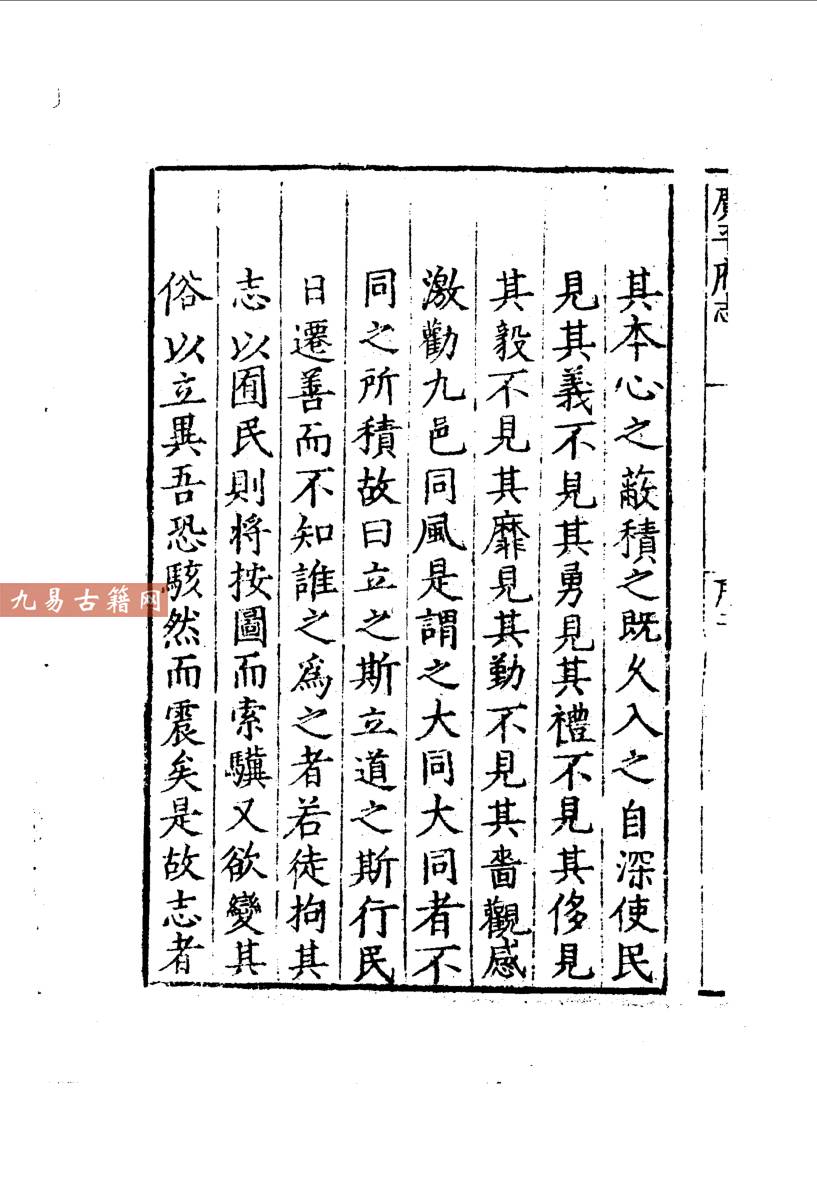 廣平府志
其本心之蔽積之既久入之自深使民
見其義不見其勇見其禮不見其侈見
其毅不見其靡見其勤不見其嗇觀感
激勸九邑同風是謂之大同大同者不
同之所積故曰立之斯立道之斯行民
日遷善而不知誰之爲之者若徒拘其
志以囿民則將按圖而索驥又欲變其
俗以立異吾恐駭然而震矣是故志者
九易古籍网